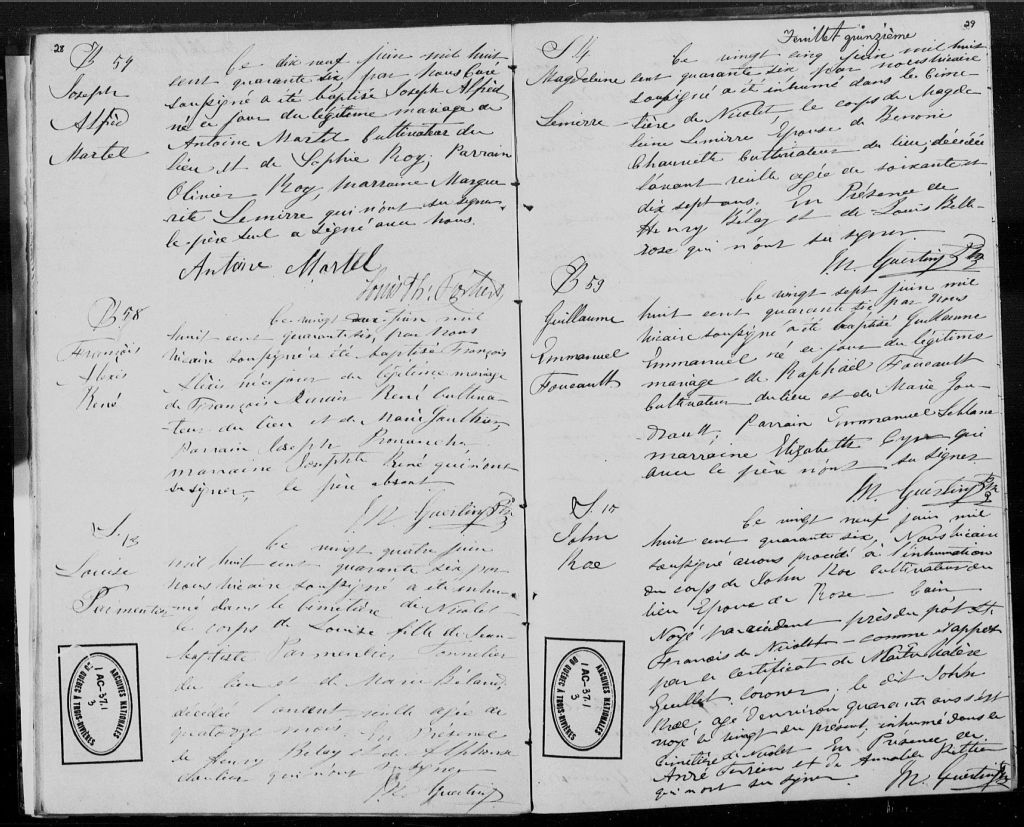 28
B 57
Joseph
Alfred
Martel
Ce dix neuf juin mil huit
cent quarante six par nous Curé
soussigné a été baptisé Joseph Alfred
né ce jour du légitime mariage de
Antoine Martel Cultivateur du
lieu et de Sophie Roy; Parrain
Olivier Roy, marraine Margue
rite Lemirre qui n'ont su signer
le père seul a signé avec nous.
Antoine Martel
B 58
François
Alexis
René
Ce vingt juin mil
huit cent quarante six, par nous
Vicaire soussigné a été baptisé François
Alexis né ce jour du légitime mariage
de François René cultiva-
teur du lieu et de Marie Gauthier
Parrain Joseph
marraine Josephte René qui n'ont
su signer, le père absent.
M. Guertin Ptre
S. 13
Louise
Parmentier
Ce vingt quatre juin
mil huit cent quarante six par
nous Vicaire soussigné a été inhu-
mé dans le cimetière de Nicolet
le corps de Louise fille de Jean-
baptiste Parmentier Tonnelier
du lieu et de Marie
décédée l'avant veille agée de
quatorze mois En Présence
de Henry Bélay et de
qui n'ont su signer
M. Guertin
ARCHIVES NATIONALES
1 AC-37.1
3
DU QUÉBEC À TROIS-RIVIÈRES
29
Feuillet quinzième
S. 14
Magdeleine
Lemirre
Ce vingt cinq juin mil huit
cent quarante six par nous Vicaire
soussigné a été inhumé dans le Cime-
tière de Nicolet, le corps de Magde
leine Lemirre Epouse de Benoni
Chaurette Cultivateur du lieu, décédée
l'avant veille agée de soixante et
dix sept ans. En Présence de
Henry Bélay et de Louis Belle-
rose qui n'ont su signer
M. Guertin Ptre
B 59
Guillaume
Emmanuel
Foucault
Ce vingt sept juin mil
huit cent quarante six, par nous
Vicaire soussigné a été baptisé Guillaume
Emmanuel né ce jour du légitime
mariage de Raphaël Foucault
Cultivateur du lieu et de Marie Gou-
drault, Parrain Emmanuel Leblanc
marraine Elizabeth Cyr qui
avec le père n'ont su signer
M. Guertin Ptre
S. 15
John
Roe
Ce vingt neuf juin mil
huit cent quarante six, Nous Vicaire
soussigné avons procédé à l'inhumation
du corps de John Roe cultivateur du
lieu Epoux de Rose — Cain
Noyé par accident près du pôt St
François de Nicolet — comme il appert
par le certificat de Maître Valère
Guillet Coroner; le dit John
Roe agé d'environ quarante ans s'est
noyé le vingt du présent, inhumé dans le
cimetière de Nicolet En Présence de
André Terrien et de
qui n'ont su signer
M. Guertin Ptre
ARCHIVES NATIONALES
1 AC-37.1
3
DU QUÉBEC À TROIS-RIVIÈRES